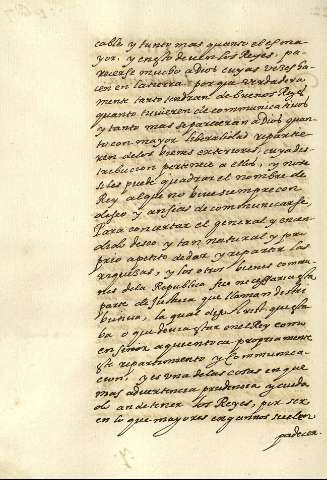 cable y tanto mas quanto el es ma
yor. y en esto deuen los Reyes pa
recerse mucho a dios cuyas vezes ha
cen en la tierra. porque verdadera
mente tanto tendran de buenos Reyes
quanto tuvieren de communicativos
y tanto mas se pareceran a Dios quan
to con mayor liberalidad repartie
ren de los bienes exteriores, cuya des
tribucion pertenece a ellos, y no se
les puede quadrar el nombre de
Rey al que no vive siempre con
deseo y ansias de communicarse,
Para concertar el general y encen
dido deseo y tan natural y pro
prio apetito de dar y repartir las
riquezas, y los otros bienes commu
nes de la Republica fue necessaria esta
parte de Justicia que llaman destri
butiva, la qual
ba o que devia estar en el Rey como
en señor a quien toca propriamente
este repartimento y Communica
cion, y es una de las cosas en que
mas advertencia prudencia y cuida
do an de tener los Reyes, por ser
en lo que mayores engannos suelen
padecer.